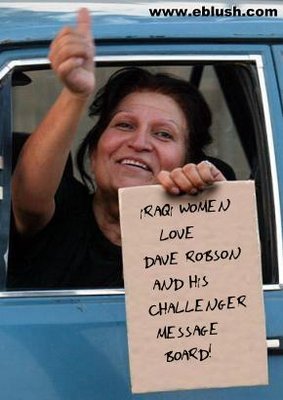 www.eblush.com
iRAQi WOMEN
LOVE
DAVE ROBSON
AND HiS
CHALLENGER
MESSAGE
BOARD!